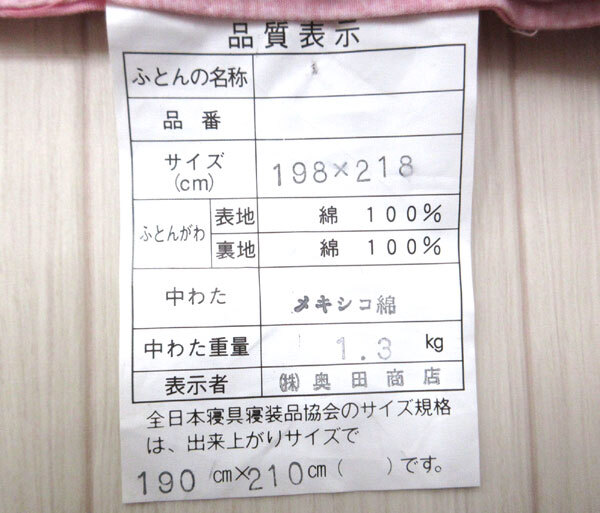 品質表示
ふとんの名称
品番
サイズ
(cm)
198×218
ふとんがわ
表地 綿 100%
裏地 綿 100%
中わた メキシコ綿
中わた重量 1.3 kg
表示者 ㈱奥田商店
全日本寝具寝装品協会のサイズ規格
は、出来上がりサイズで
190 cm×210cm( )です。